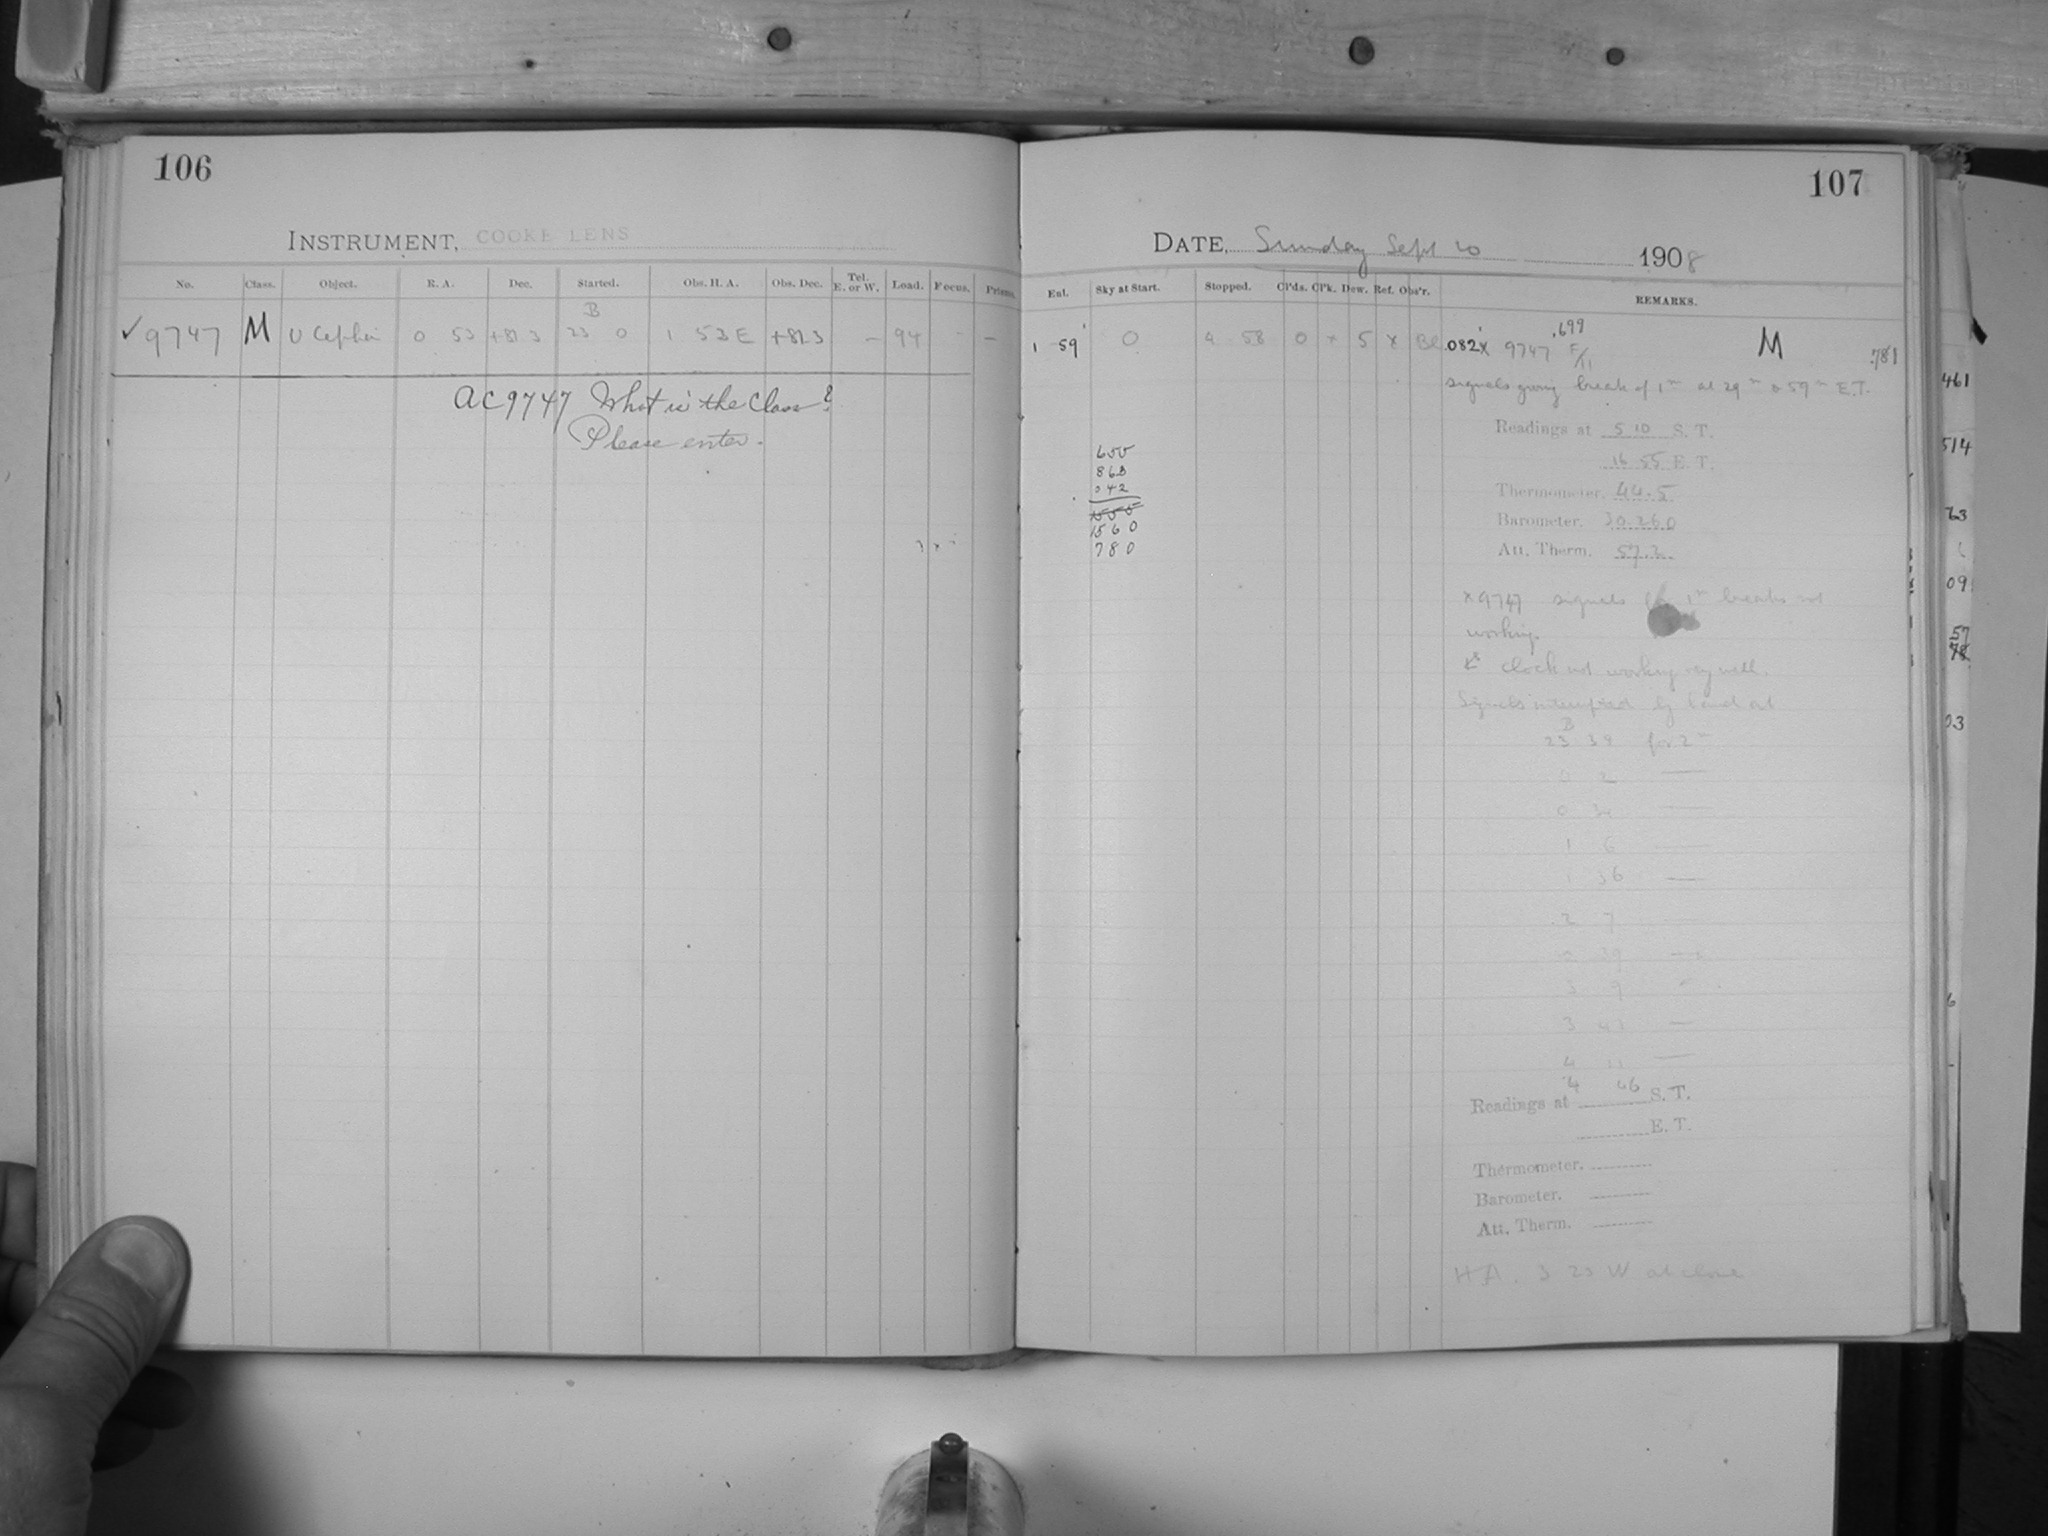 106
INSTRUMENT, COOKE LENS
No. Class. Object. R. A. Dec. Started. Obs. H. A. Obs. Dec. Tel. E. or W. Load. Focus. Prisms.
B
✓ 9747 M U Cephei 0 53 +81 3 23 0 1 53 E +81.3 — 94 - —
AC9747 What is the Class?
Please enter.
107
DATE, Sunday Sept 20 1908
Ent. Sky at Start. Stopped. Cl'ds. Cl'k. Dew. Ref. Obs'r. REMARKS.
1 59 0 4 58 0 x 5 x .082 x 9747 F/11 .699 M .781
signals giving break of 1m at 29m & 59m E.T.
Readings at 5 10 S. T.
16 55 E. T.
Thermometer. 44.5
Barometer. 30.260
Att. Therm. 57.2
655
863
042
1560
780
x 9747 signals 1m breaks not
working.
Clock not working very well.
Signals interrupted by hand at
B
23 39 for 2m
0 2 —
0 34 —
1 6 —
1 36 —
2 7 —
2 39 —
3 9
3 —
4 11 —
Readings at 4 46 S. T.
E. T.
Thermometer.
Barometer.
Att. Therm.
H A. 3 23 W at close
461
514
63
09
57
03
6